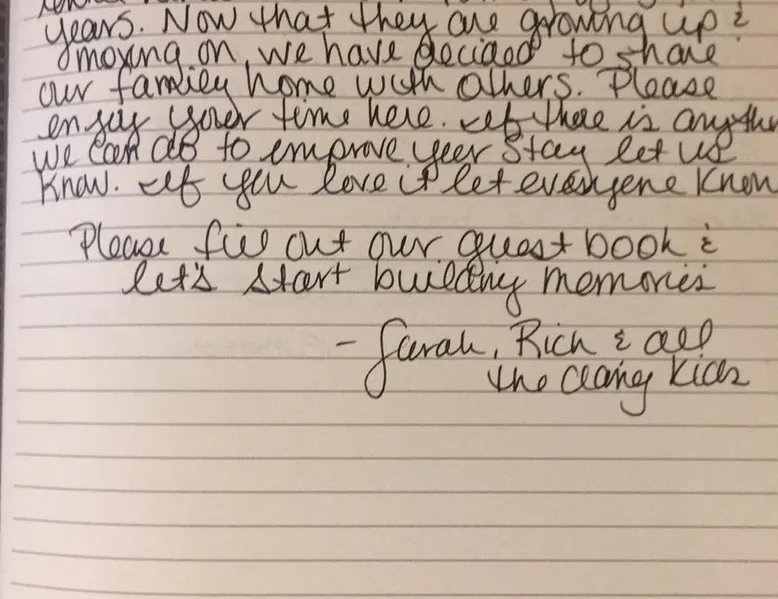 years. Now that they are growing up &
moving on, we have decided to share
our family home with others. Please
enjoy your time here. If there is anythi
we can do to improve your stay let us
know. If you love it let everyone know
Please fill out our guest book &
let's start building memories
- Sarah, Rich & all
the kids